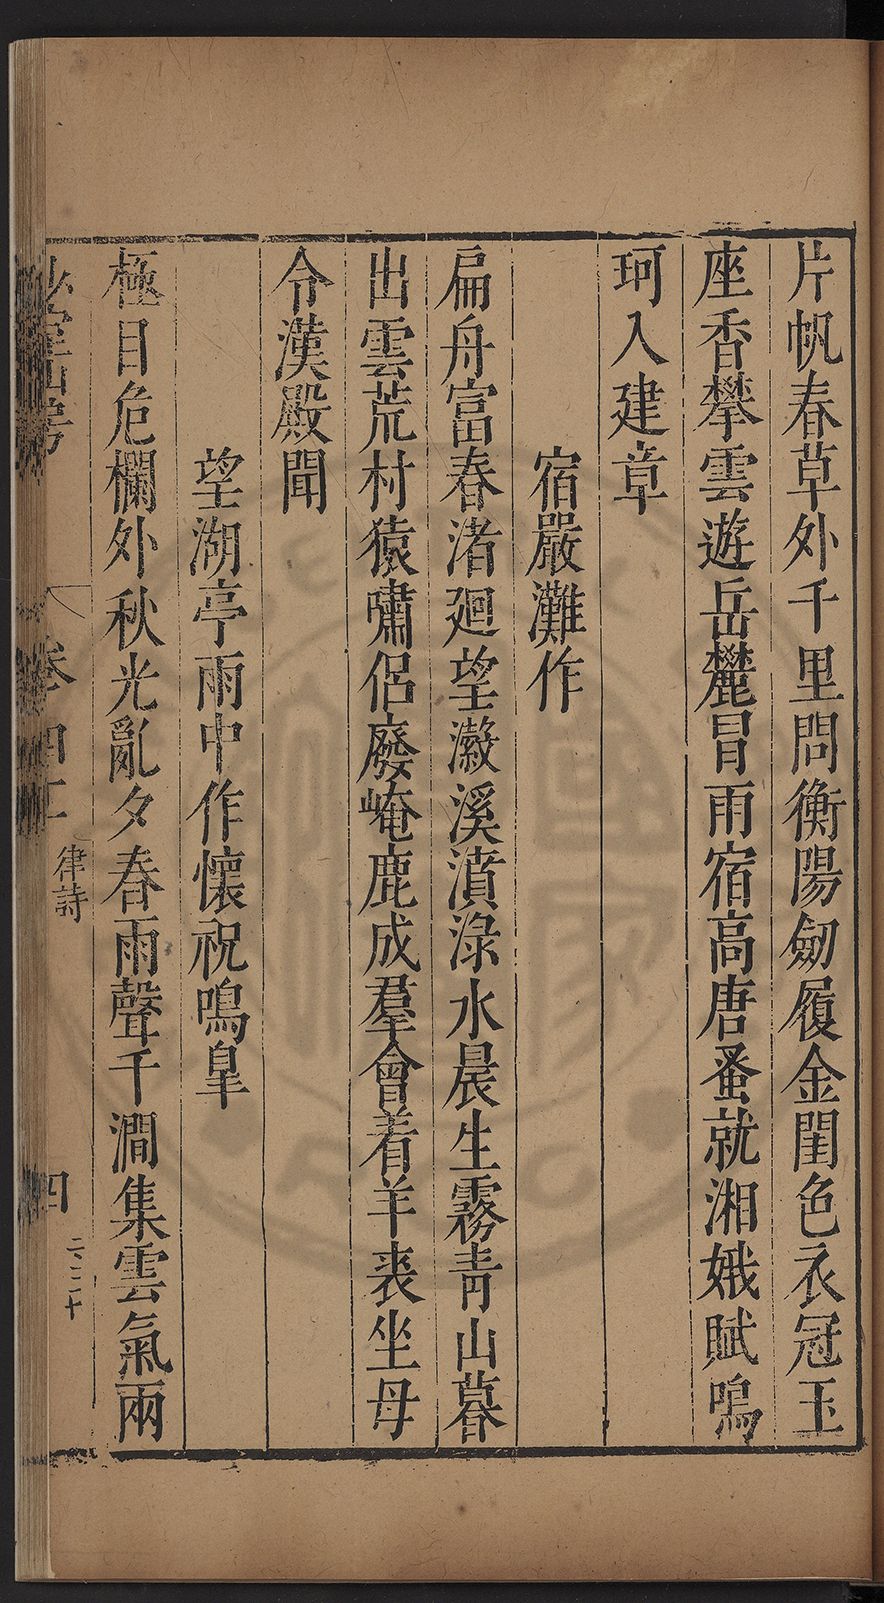 片帆春草外千里問衡陽劒履金閨色衣冠玉
座香攀雲遊岳麓冒雨宿高唐蚤就湘娥賦鳴
珂入建章
宿嚴灘作
扁舟富春渚廻望瀫溪濆淥水晨生霧青山暮
出雲荒村猿嘯侶廢崦鹿成羣會着羊裘坐毋
令漢殿聞
望湖亭雨中作懷祝鳴皐
極目危欄外秋光亂夕春雨聲千澗集雲氣兩
少室山房
卷四十
律詩
四